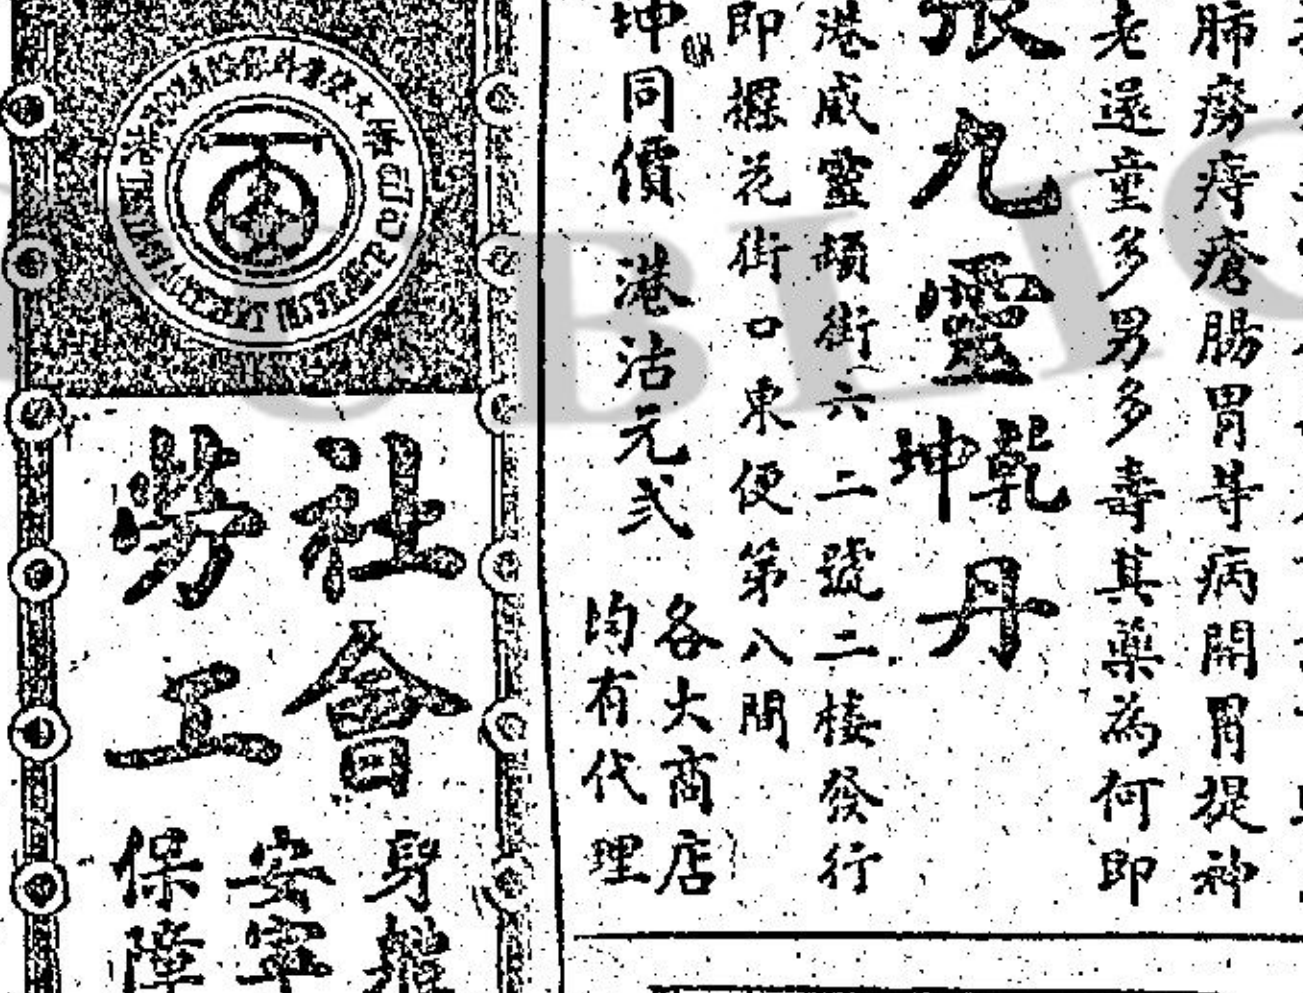 肺癆痔瘡腸胃等病開胃提神
老還童多男多壽其藥為何即
張九靈乾坤丹
港威靈頓街六二號二楼發行
即擺花街口東便第八間
坤同價 港沽元弍 各大商店均有代理
社會
勞工
身體
安寧
保障